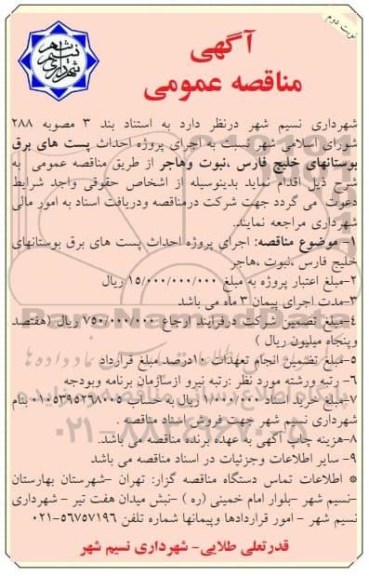 نوبت دوم
شهرداری نسیم شهر
آگهی
مناقصه عمومی
شهرداری نسیم شهر درنظر دارد به استناد بند ۳ مصوبه ۲۸۸
شورای اسلامی شهر نسبت به اجرای پروژه احداث پست های برق
بوستانهای خلیج فارس ،نبوت وهاجر از طریق مناقصه عمومی به
شرح ذیل اقدام نماید بدینوسیله از اشخاص حقوقی واجد شرایط
دعوت می گردد جهت شرکت درمناقصه ودریافت اسناد به امور مالی
شهرداری مراجعه نمایند.
۱- موضوع مناقصه: اجرای پروژه احداث پست های برق بوستانهای
خلیج فارس ،نبوت ،هاجر
۲-مبلغ اعتبار پروژه به مبلغ ۱۵/۰۰۰/۰۰۰/۰۰۰ ریال
۳-مدت اجرای پیمان ۳ ماه می باشد
۴-مبلغ تضمین شرکت درفرایند ارجاع ۷۵۰/۰۰۰/۰۰۰ ریال (هفتصد
وپنجاه میلیون ریال )
۵-مبلغ تضمین انجام تعهدات ۱۰درصد مبلغ قرارداد
۶- رتبه ورشته مورد نظر :رتبه نیرو ازسازمان برنامه وبودجه
۷-مبلغ خرید اسناد ۱/۰۰۰/۰۰۰ ریال به حساب ۰۱۰۵۳۹۵۲۶۸۰۰۵ بنام
شهرداری نسیم شهر جهت فروش اسناد مناقصه .
۸-هزینه چاپ آگهی به عهده برنده مناقصه می باشد.
۹- سایر اطلاعات وجزئیات در اسناد مناقصه می باشد
* اطلاعات تماس دستگاه مناقصه گزار: تهران –شهرستان بهارستان
–نسیم شهر –بلوار امام خمینی (ره ) –نبش میدان هفت تیر – شهرداری
نسیم شهر - امور قراردادها وپیمانها شماره تلفن ۵۶۷۵۷۱۹۶-۰۲۱
قدرتعلی طلایی- شهرداری نسیم شهر
۰۲۱-۸۸۳۴۹۶۷۰-۵